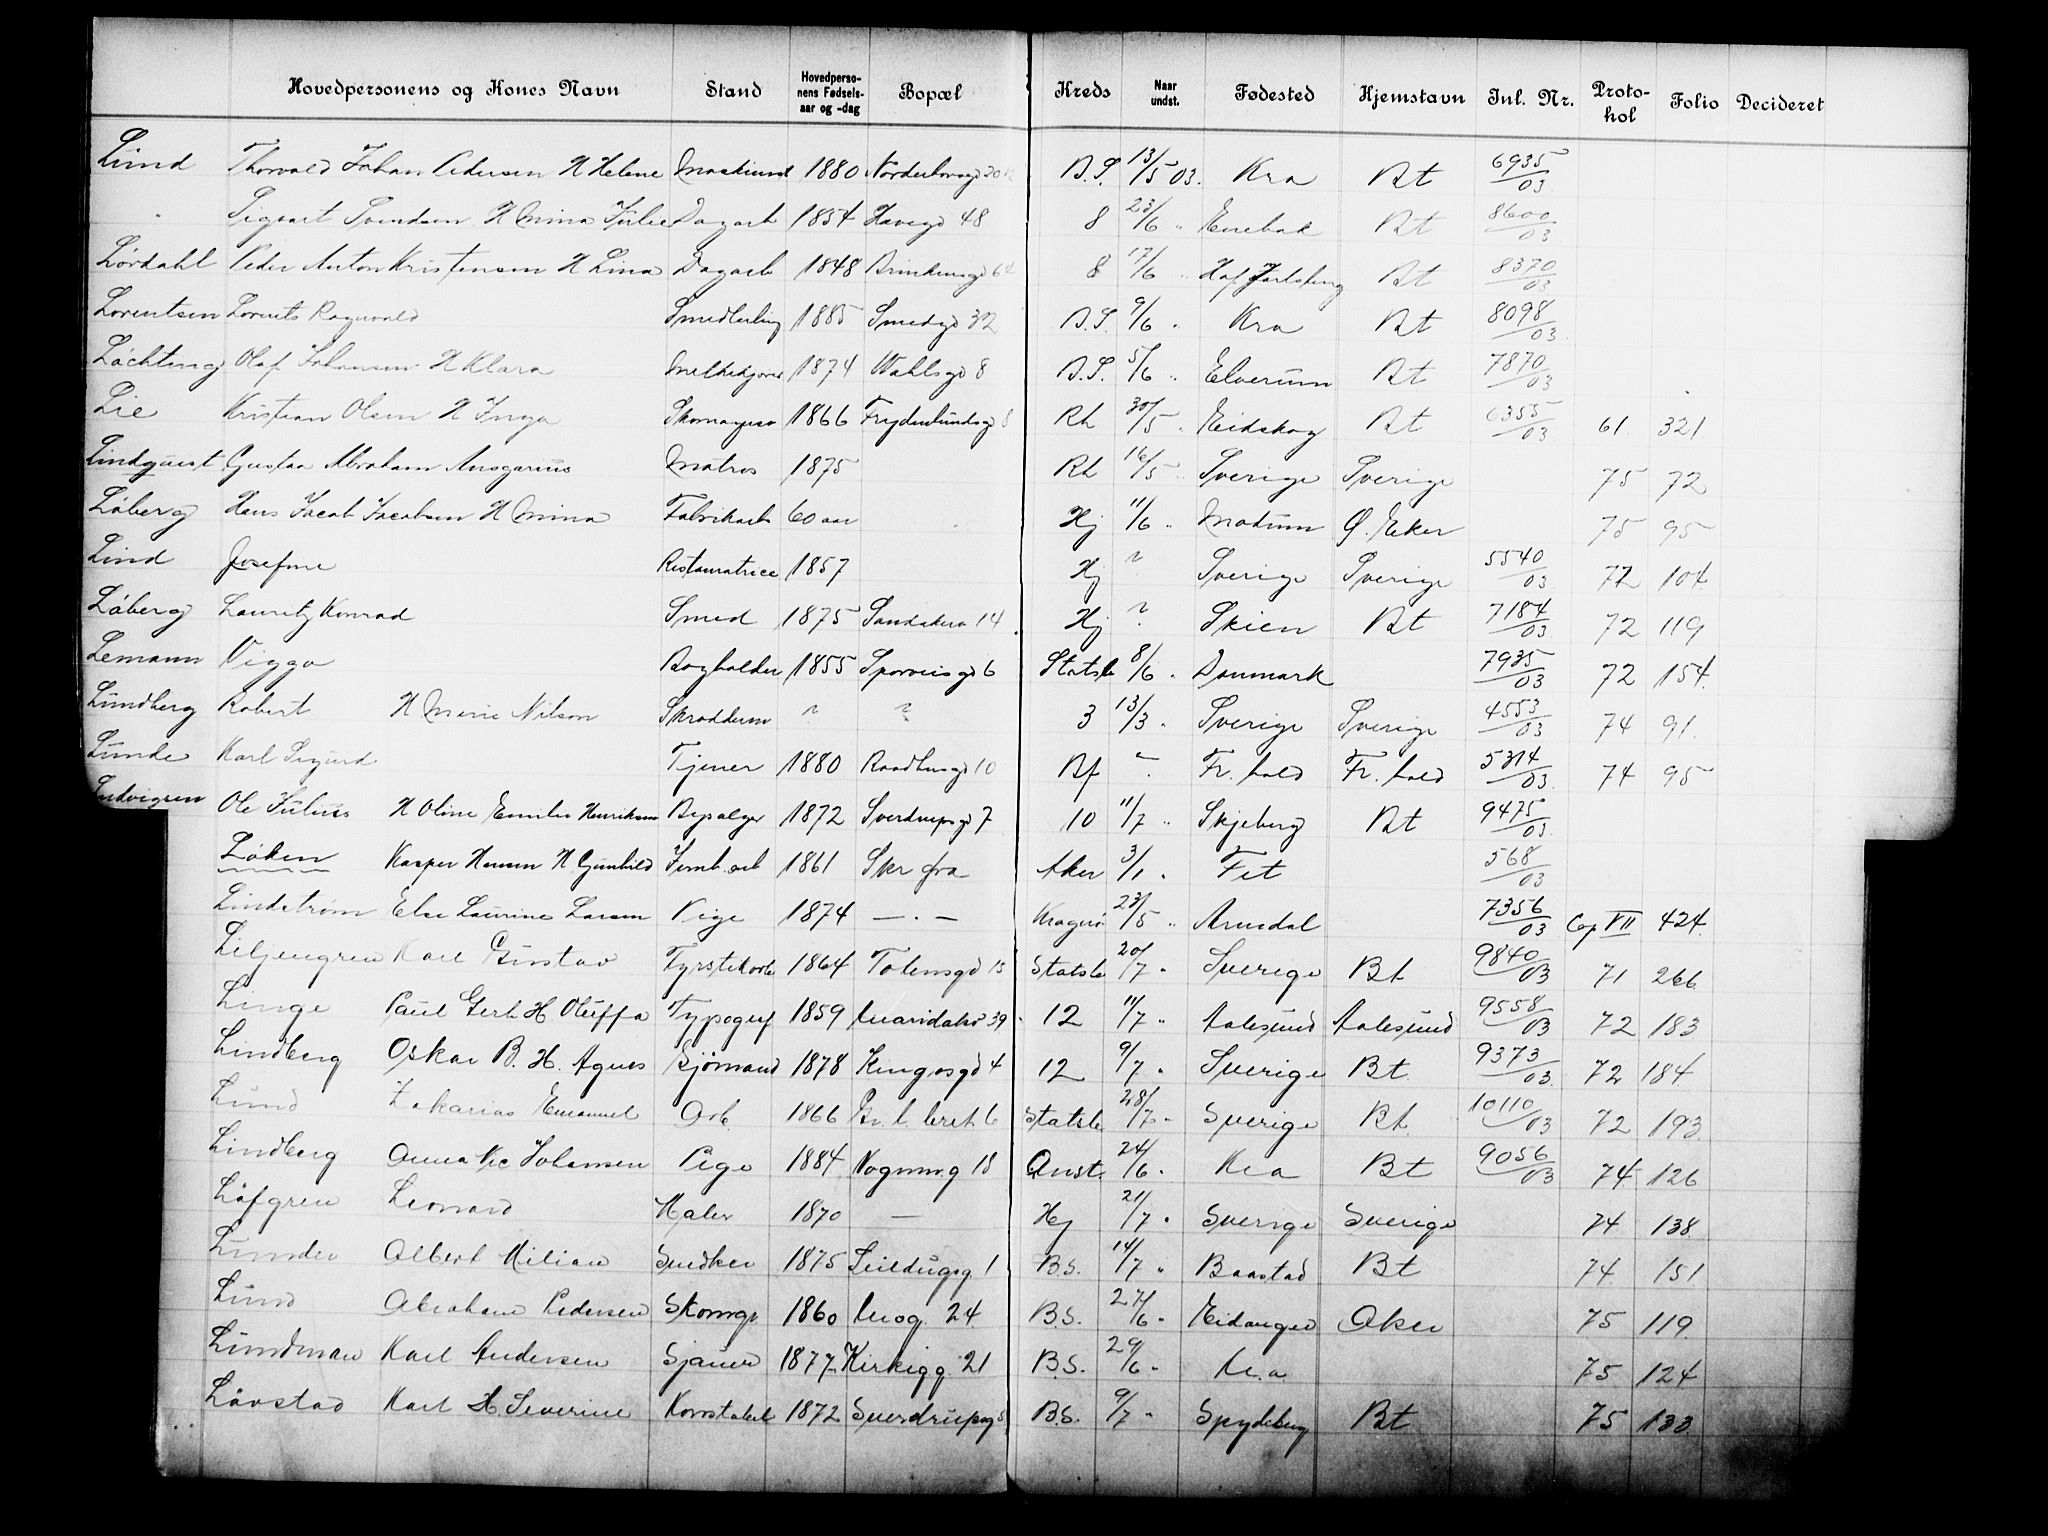 Hovedpersonens og Kones Navn Stand Hovedperso-nens Fødsels-aar og -dag Bopæl Kreds Naar undst. Fødested Hjemstavn Inl. Nr. Proto-kol Folio Decideret
Lund Thorvald Johan Pedersen H Helene 1880 B.S. 13/5 03. Kra Bt 6935/03
" Sigvart Svendsen H Mina Julie Dagarb 1854 Havegd 48 8 23/6 " Enebak Bt 8600/03
Lørdahl Peder Anton Kristensen H Lina Dagarb 1848 8 17/6 " Hof Jarlsberg Bt 8370/03
Lorentsen Lorents Ragnvald Smedlærling 1885 Smedgd 32 B.S. 9/6 " Kra Bt 8098/03
Olaf Johansen H Klara Melkekjører 1874 Wahlsgd 8 B.S. 5/6 " Elverum Bt 7870/03
Lie Kristian Olsen H Inga Skomager 1866 Frydenlundsgd 8 Rh 30/5 " Eidskog Bt 6355/03 61. 321
Lindquist Gustav Abraham Ansgarius Matros 1875 Rh 16/5 " Sverige Sverige 75 72
Løberg Hans Jacob Jacobsen H Mina Fabrikarb 60 aar Hj 11/6 " Modum Ø. Eker 75 95
Lind Josefine Restauratrice 1857 Hj ? Sverige Sverige 5540/03 72 104
Løberg Lauritz Konrad Smed 1875 Sandakerv 14 Hj ? Skien Bt 7184/03 72 119
Lemann Viggo Bogholder 1855 Sporveisgd 6 Statsb 8/6 " Danmark 7935/03 72 154.
Lundberg Robert H Marie Nilson Skrædderm ? ? 3 13/3 " Sverige Sverige 4553/03 74 91.
Lunde Karl Sigurd Tjener 1880 Raadhusgd 10 Bf Fr. hald Fr. hald 5314/03 74 95
Ludvigsen Ole Julius H Oline Emilie Henriksen 1872 Sverdrupsgd 7 10 11/7 " Skjeberg Bt 9475/03
Løken Kasper Hansen H Gunhild Jernb. arb 1861 Skr fra Aker 3/1 " Fet 568/03
Lindstrøm Else Laurine Larsen Pige 1874 — . — Kragerø 23/5 " Arendal 7356/03 Cop VII 424
Liljengren Karl Gustav 1864 Toftensgd 15 Statsb 20/7 " Sverige Bt 9840/03 71 266
Linge Paul Gerh. H. Oluffa Typogrf 1859 Maridalsv 39 12 11/7 " Aalesund Aalesund 9558/03 72 183
Lindberg Oskar B. H. Agnes Sjömand 1878 Kingosgd 4 12 9/7 " Sverige Bt. 9373/03 72 184
Lund Zakarias Emanuel Arb. 1866 Statsb 28/7 " Sverige Bt. 10110/03 72 193
Lindberg Anna Johansen Pige 1884 Vognm.g 18 Anst. 24/6 " Kra Bt 9056/03 74 126
Löfgren Leonard Maler 1870 — Hj 21/7 " Sverige Sverige 74 138
Lunder Albert Milian Snedker 1875 1 B.S. 14/7 " Baastad Bt 74 151
Lund Abraham Pedersen Skomgr 1860 24 B.S. 27/6 " Eidanger Aker 75 119
Lundman Karl Andersen Sjauer 1877 Kirkegg. 21 B.S. 29/6 " 75 124
Lövstad Karl H. Severine Konstabel 1872 Sverdrupsg 5 B.S. 9/7 " Spydeberg Bt 75 133